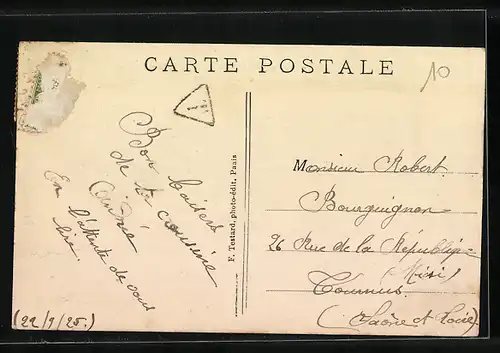 CARTE POSTALE
10
Bons baisers
de ta cousine
En l'attente de vous
lire.
(22/9/25.)
F. Testard, photo-édit, Paris
Monsieur Robert
Bourguignon
26 Rue de la République
Tournus
(Saône et Loire)